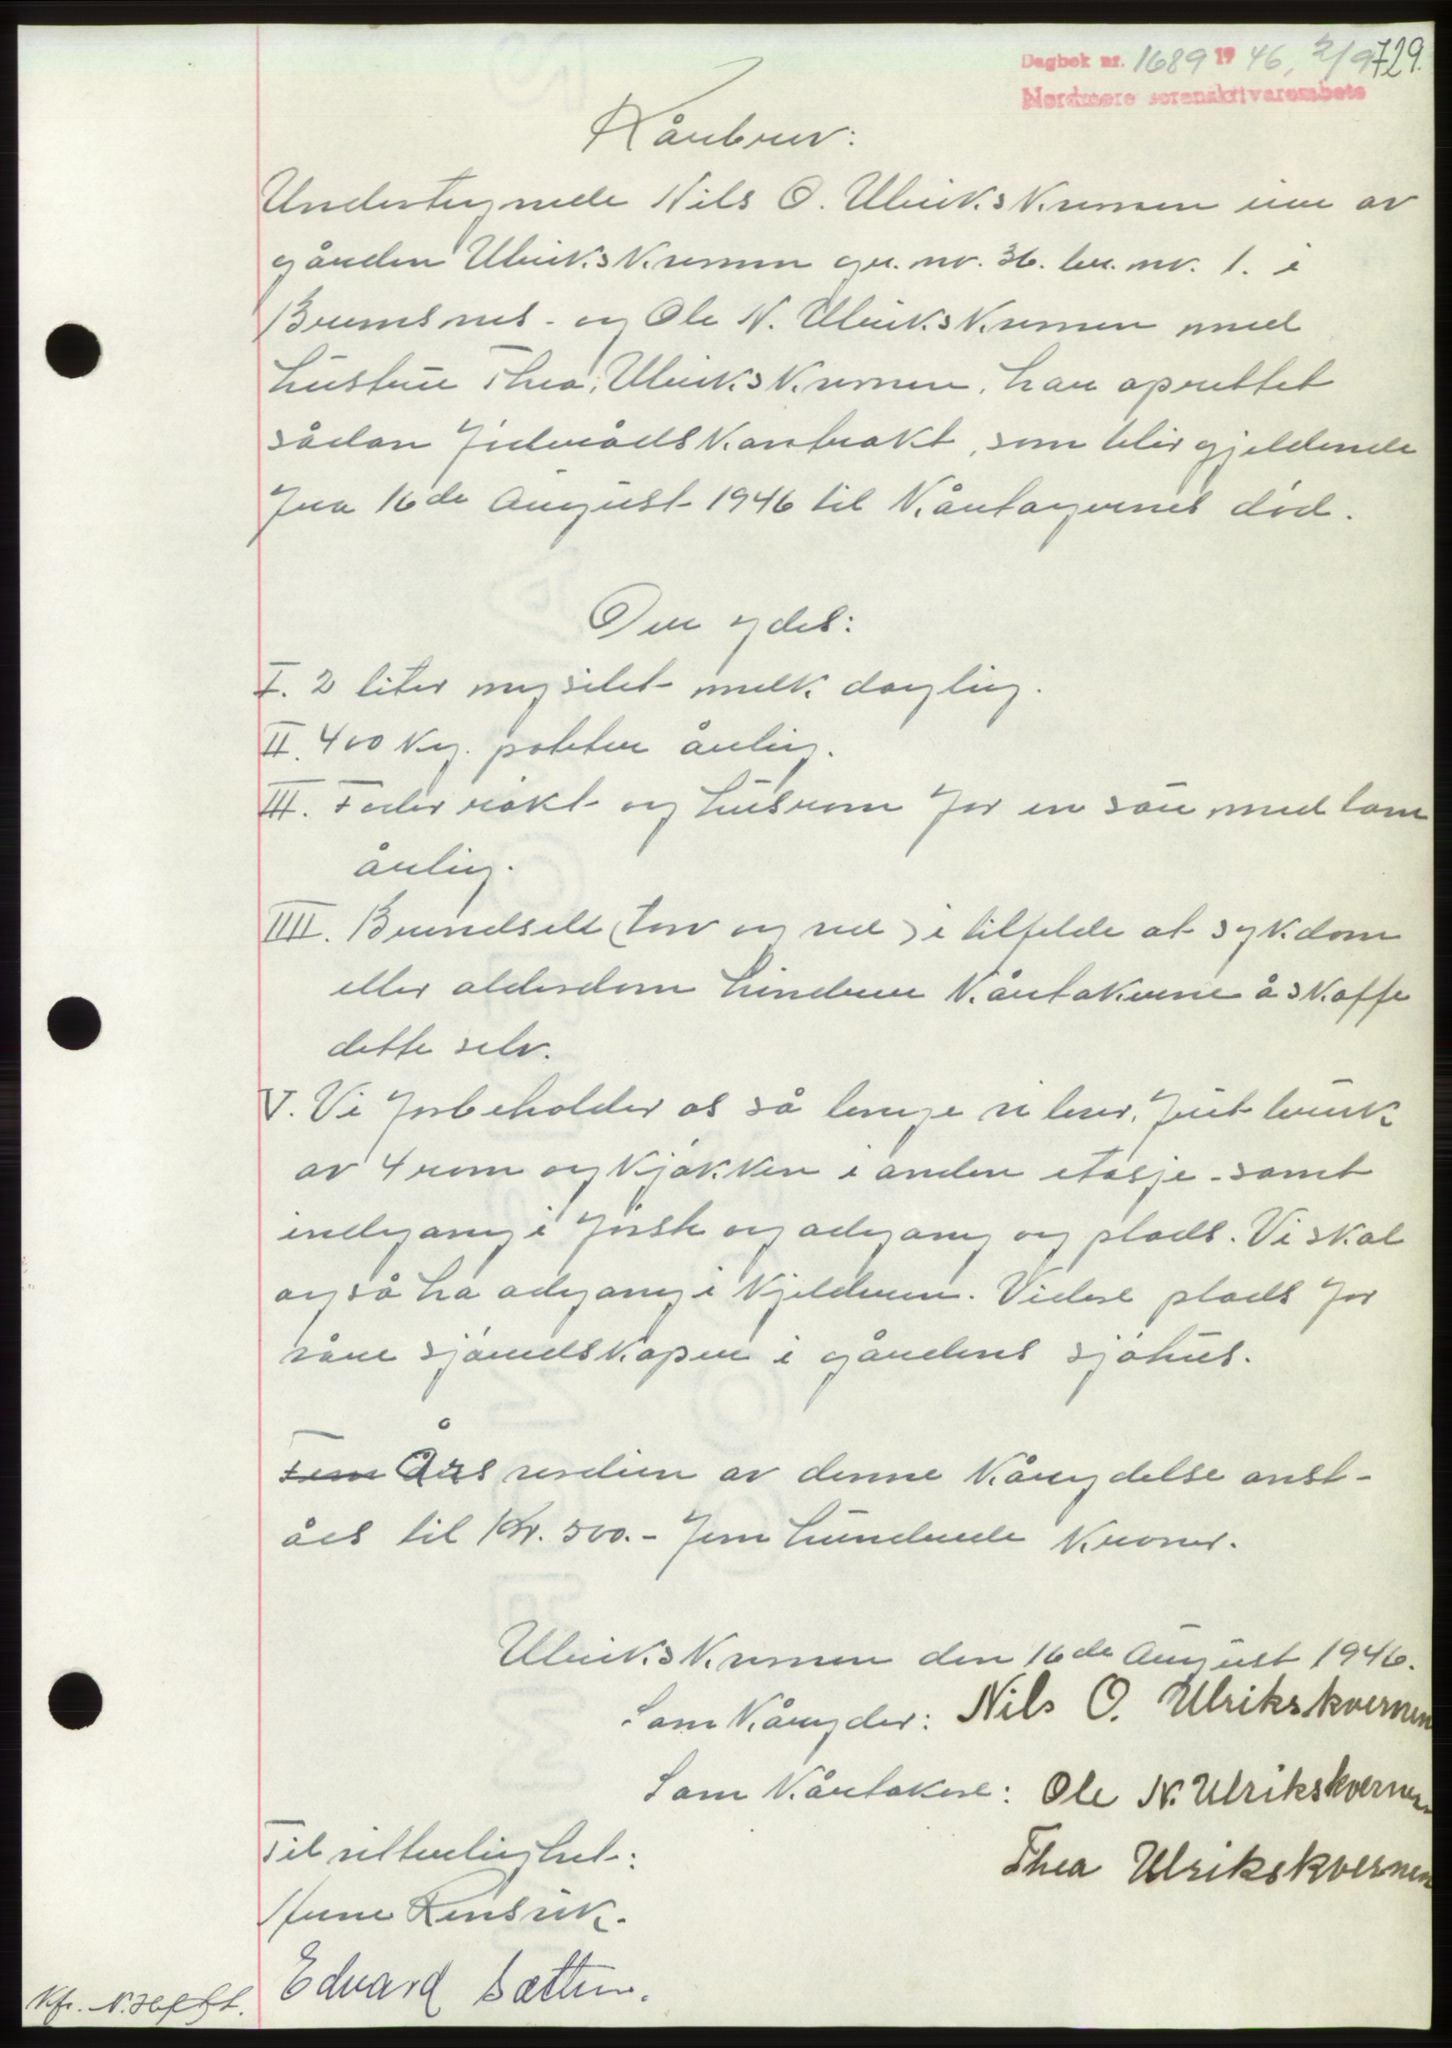 Dagbok nr. 1689 1946, 2/9 729.
Nordmøre sorenskriverembete
Kårbrev:
Undertegnede Nils O. Ulrikskvernen eier av
gården Ulrikskvernen gr. nr. 36. br. nr. 1. i
Bremsnes - og Ole N. Ulrikskvernen med
hustru Thea Ulrikskvernen, har oprettet
sådan föderådskontrakt, som blir gjeldende
fra 16de August 1946 til Kårtagernes död.
Der ydes:
I. 2 liter nysilet melk daglig.
II. 400 Kg. poteter årlig.
III. Foder røkt og husrom for en sau med lam
årlig.
IIII. Brendsell (torv og ved) i tilfelde at sykdom
eller alderdom hindrer Kårtakerne å skaffe
dette selv.
V. Vi forbeholder os så lenge vi lever, frit bruk
av 4 rom og kjøkken i anden etasje - samt
indgang i förste og adgang og plads. Vi skal
også ha adgang i kjelderen. Videre plads for
våre sjöredskaper i gårdens sjöhus.
Fem Års verdien av denne Kårydelse anst-
åes til Kr. 500.- fem hundrede Kroner.
Ulrikskvernen den 16de August 1946.
Som Kåryder: Nils O. Ulrikskvernen
Som Kårtakere: Ole N. Ulrikskvernen
Thea Ulrikskvernen
Til vitterlighet:
Rensvik.
Edvard Sætter.
Kfr.